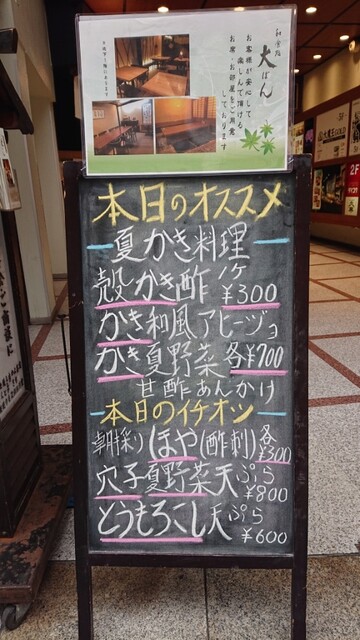 和食処
大ばん
お客様が安心して
楽しんで頂ける
お席・お部屋をご用意
しております
本日のオススメ
夏かき料理
殻かき酢 1ケ ¥300
かき和風アヒージョ
かき夏野菜 各¥700
甘酢あんかけ
本日のイチオシ
朝採りほや(酢・刺)各¥300
穴子夏野菜天ぷら ¥800
とうもろこし天ぷら ¥600
2F